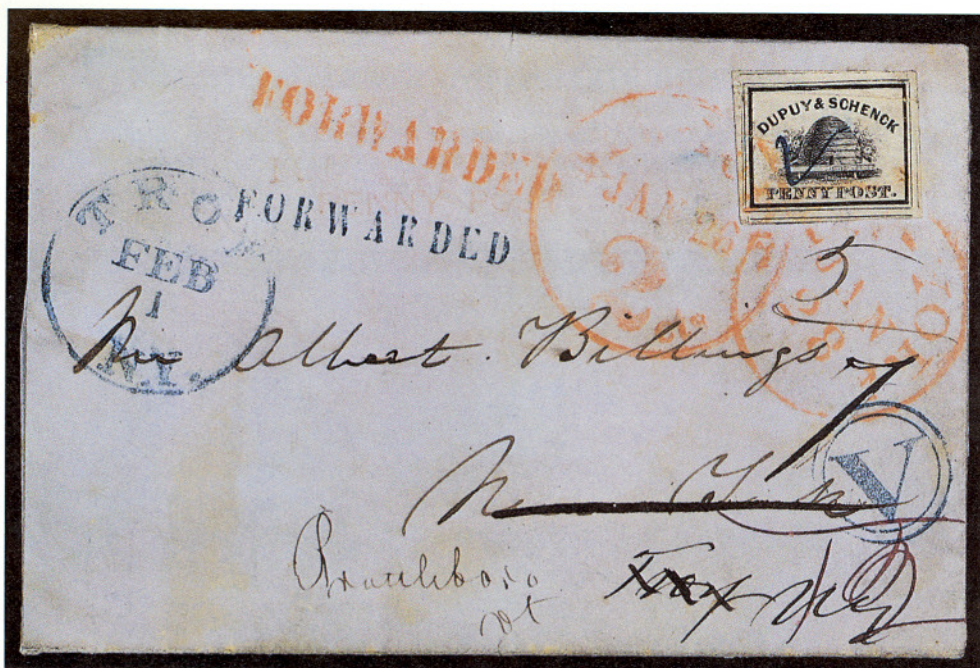 FORWARDED
DUPUY & SCHENCK
PENNY POST.
FORWARDED
TROY
FEB
1
N.Y.
JAN
26
2
5
Mr Albert Billings
New York
V
Brattleboro
vt
Troy NY
10